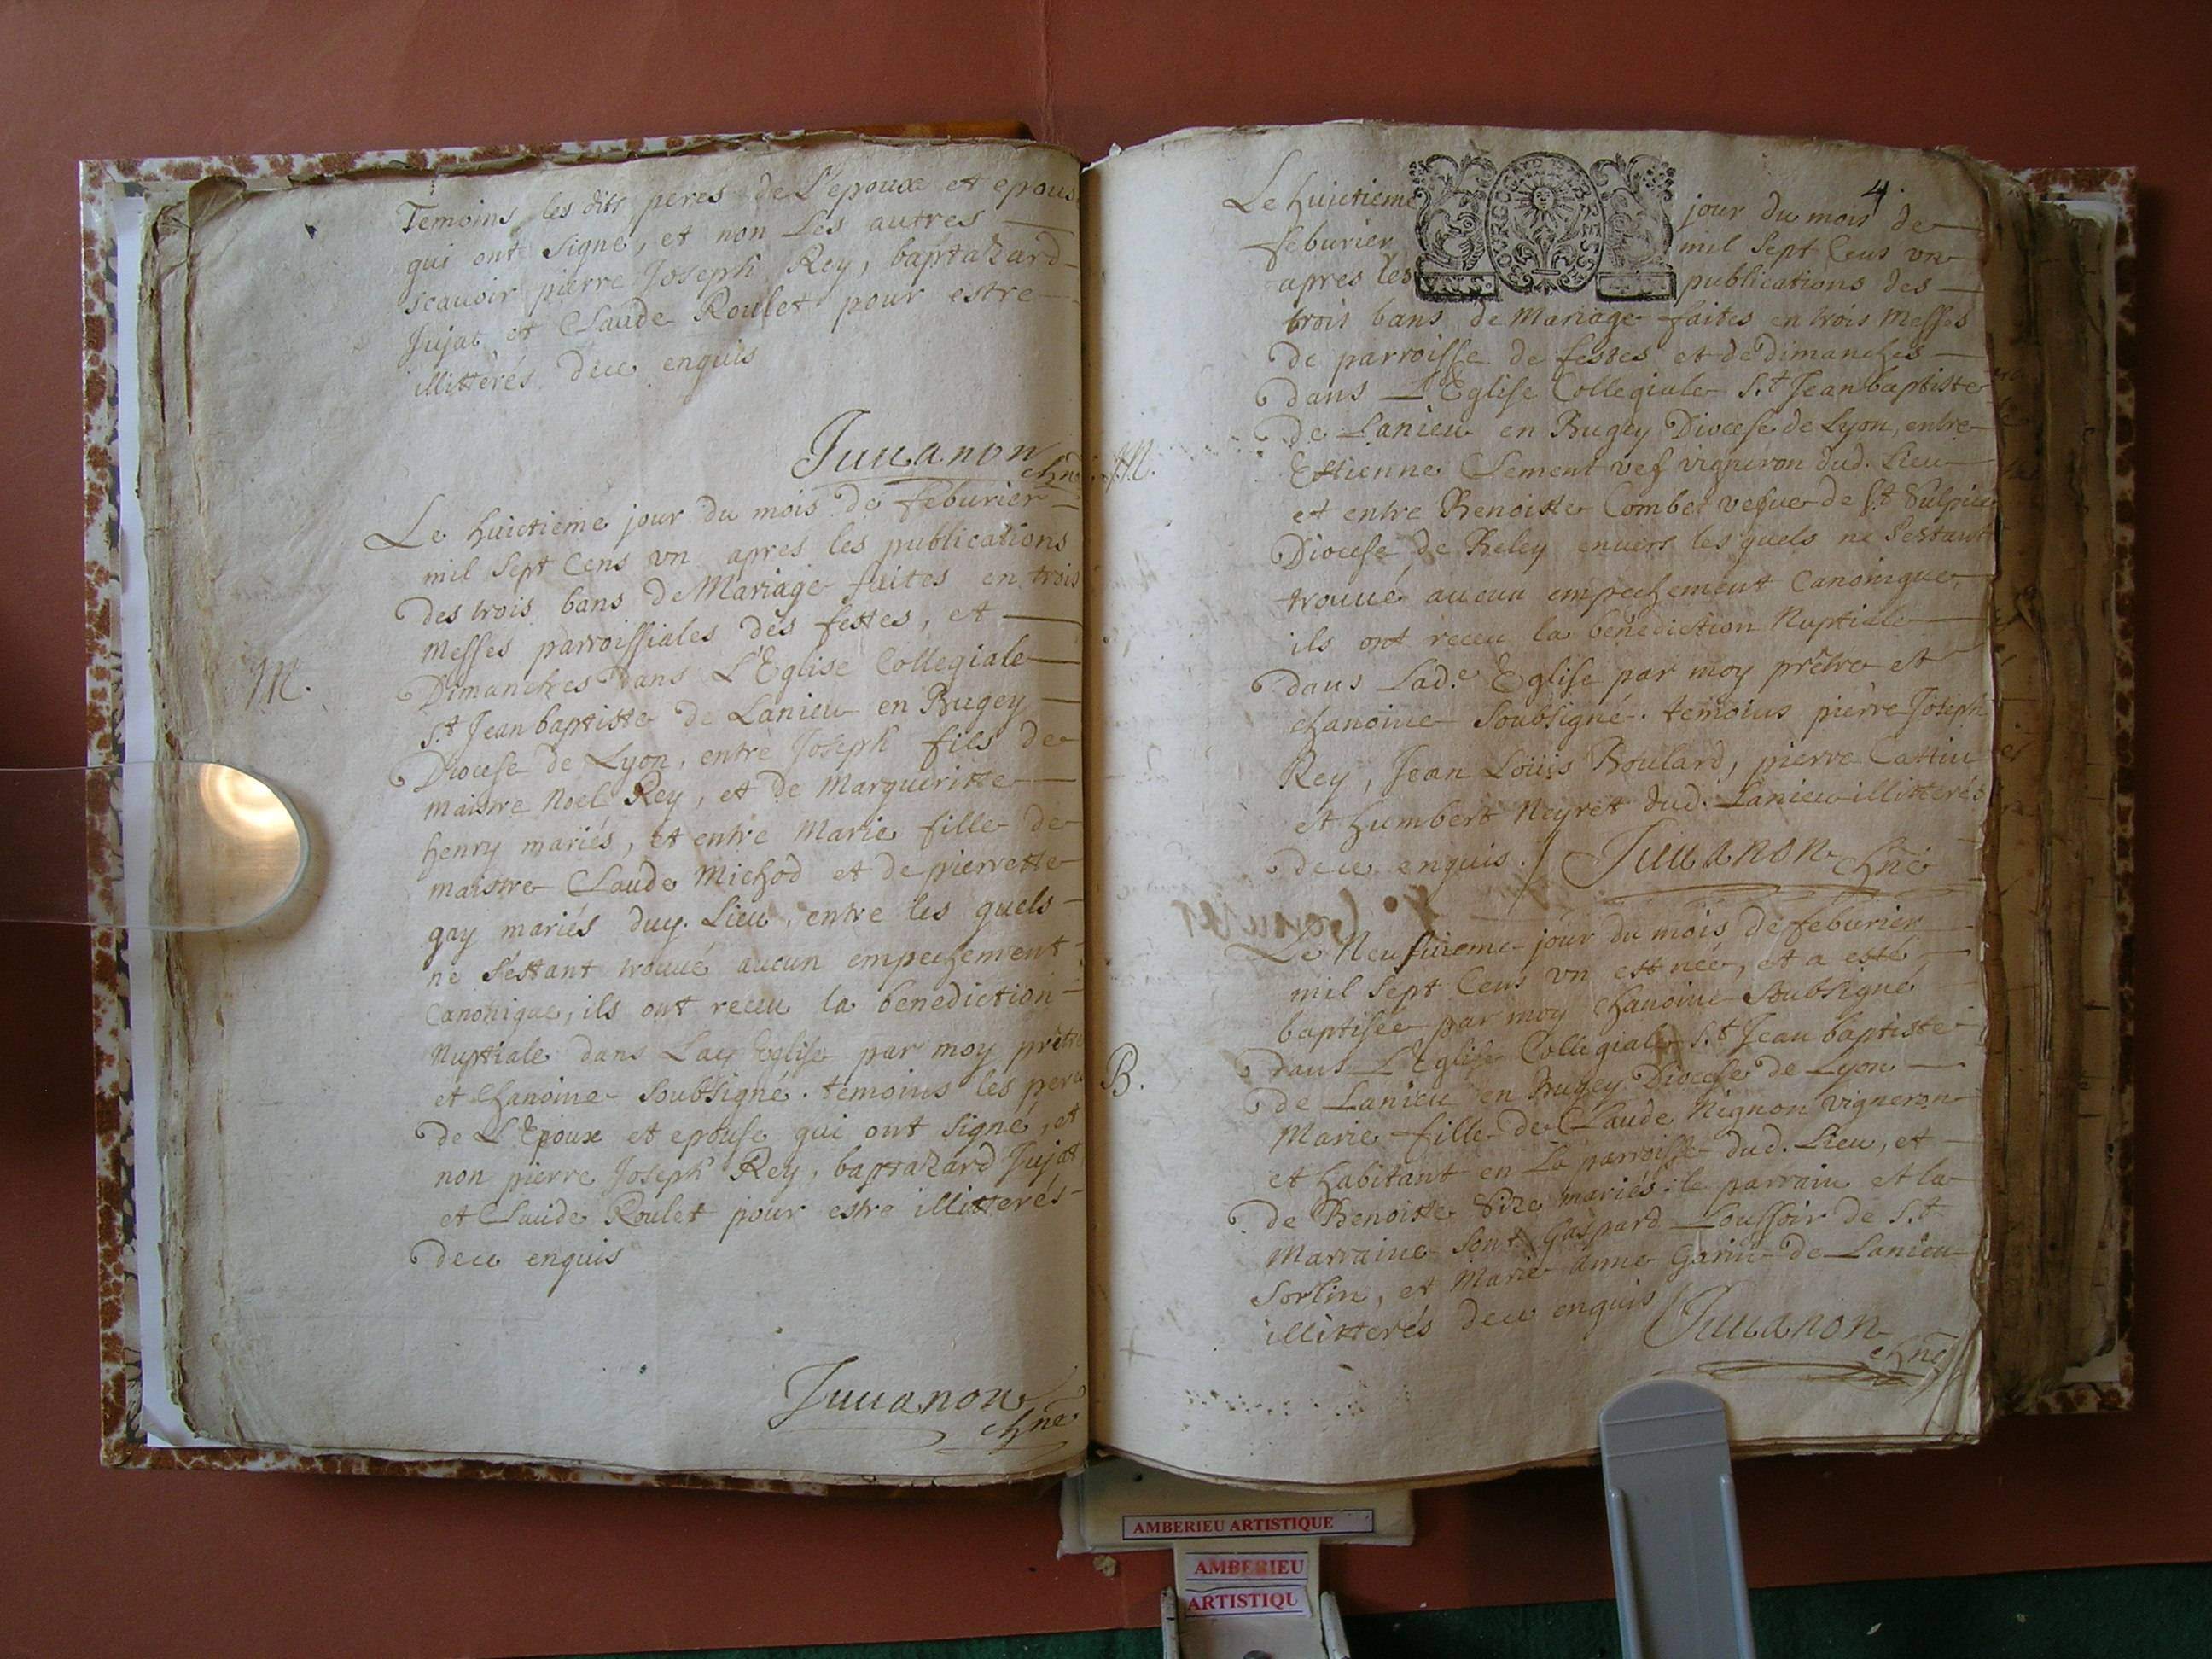 Temoins les dits peres de L'epoux et epous
qui ont signé, et non Les autres
scauoir pierre Joseph Rey, baptazard
Jujat et Claude Roulet pour estre
illitterés dece enquis
Juuanon
chne
Le huictieme jour du mois de feburier
mil sept Cens vn apres les publications
des trois bans de Mariage faites en trois
Messes parroissiales des festes, et
M.
Dimanches dans L'Eglise Collegiale
S.t Jean baptiste de Lanieu en Bugey
Diocese de Lyon, entre Joseph fils de
maistre Noel Rey, et de Margueritte
henry mariés, et entre Marie fille de
maistre Claude Michod et de pierrette
gay mariés duy. Lieu, entre les quels
ne s'estant trouué aucun empechement
Canonique, ils ont receu la benediction
Nuptiale dans Lay Eglise par moy prêtre
et Chanoine soubsigné. temoins les pere
de L'Epoux et epouse qui ont signé, et
non pierre Joseph Rey, baptazard Jujat
et Claude Roulet pour estre illitterés
dece enquis
Juuanon
chne
4.
Le huictieme jour du mois de
feburier mil sept Cens vn
apres les publications des
trois bans de Mariage faites en trois Messes
de parroisse de festes et de dimanches
dans L'Eglise Collegiale S.t Jean baptiste
de Lanieu en Bugey Diocese de Lyon, entre
M.
Estienne Clement vef vigneron dud. Lieu
et entre Benoiste Combet vefue de S.t Sulpice
Diocese de Beley enuers les quels ne s'estant
trouué aucun empechement Canonique,
ils ont receu la benediction Nuptiale
dans Lad.e Eglise par moy prêtre et
chanoine soubsigné. temoins pierre Joseph
Rey, Jean Loüis Boulard, pierre
et humbert Neyret dud. Lanieu illitterés
dece enquis. / Juuanon chne
Le Neufuieme jour du mois de feburier
mil sept Cens vn est née, et a esté
baptisée par moy chanoine soubsigné
dans L'Eglise Collegiale S.t Jean baptiste
B.
de Lanieu en Bugey Diocese de Lyon
Marie fille de Claude Nignon vigneron
et habitant en La parroisse dud. Lieu, et
de Benoiste mariés: le parrain et la
Marraine sont Gaspard de S.t
Sorlin, et Marie Anne Garin de Lanieu
illitterés dece enquis Juuanon
chne
AMBERIEU ARTISTIQUE
AMBERIEU
ARTISTIQU